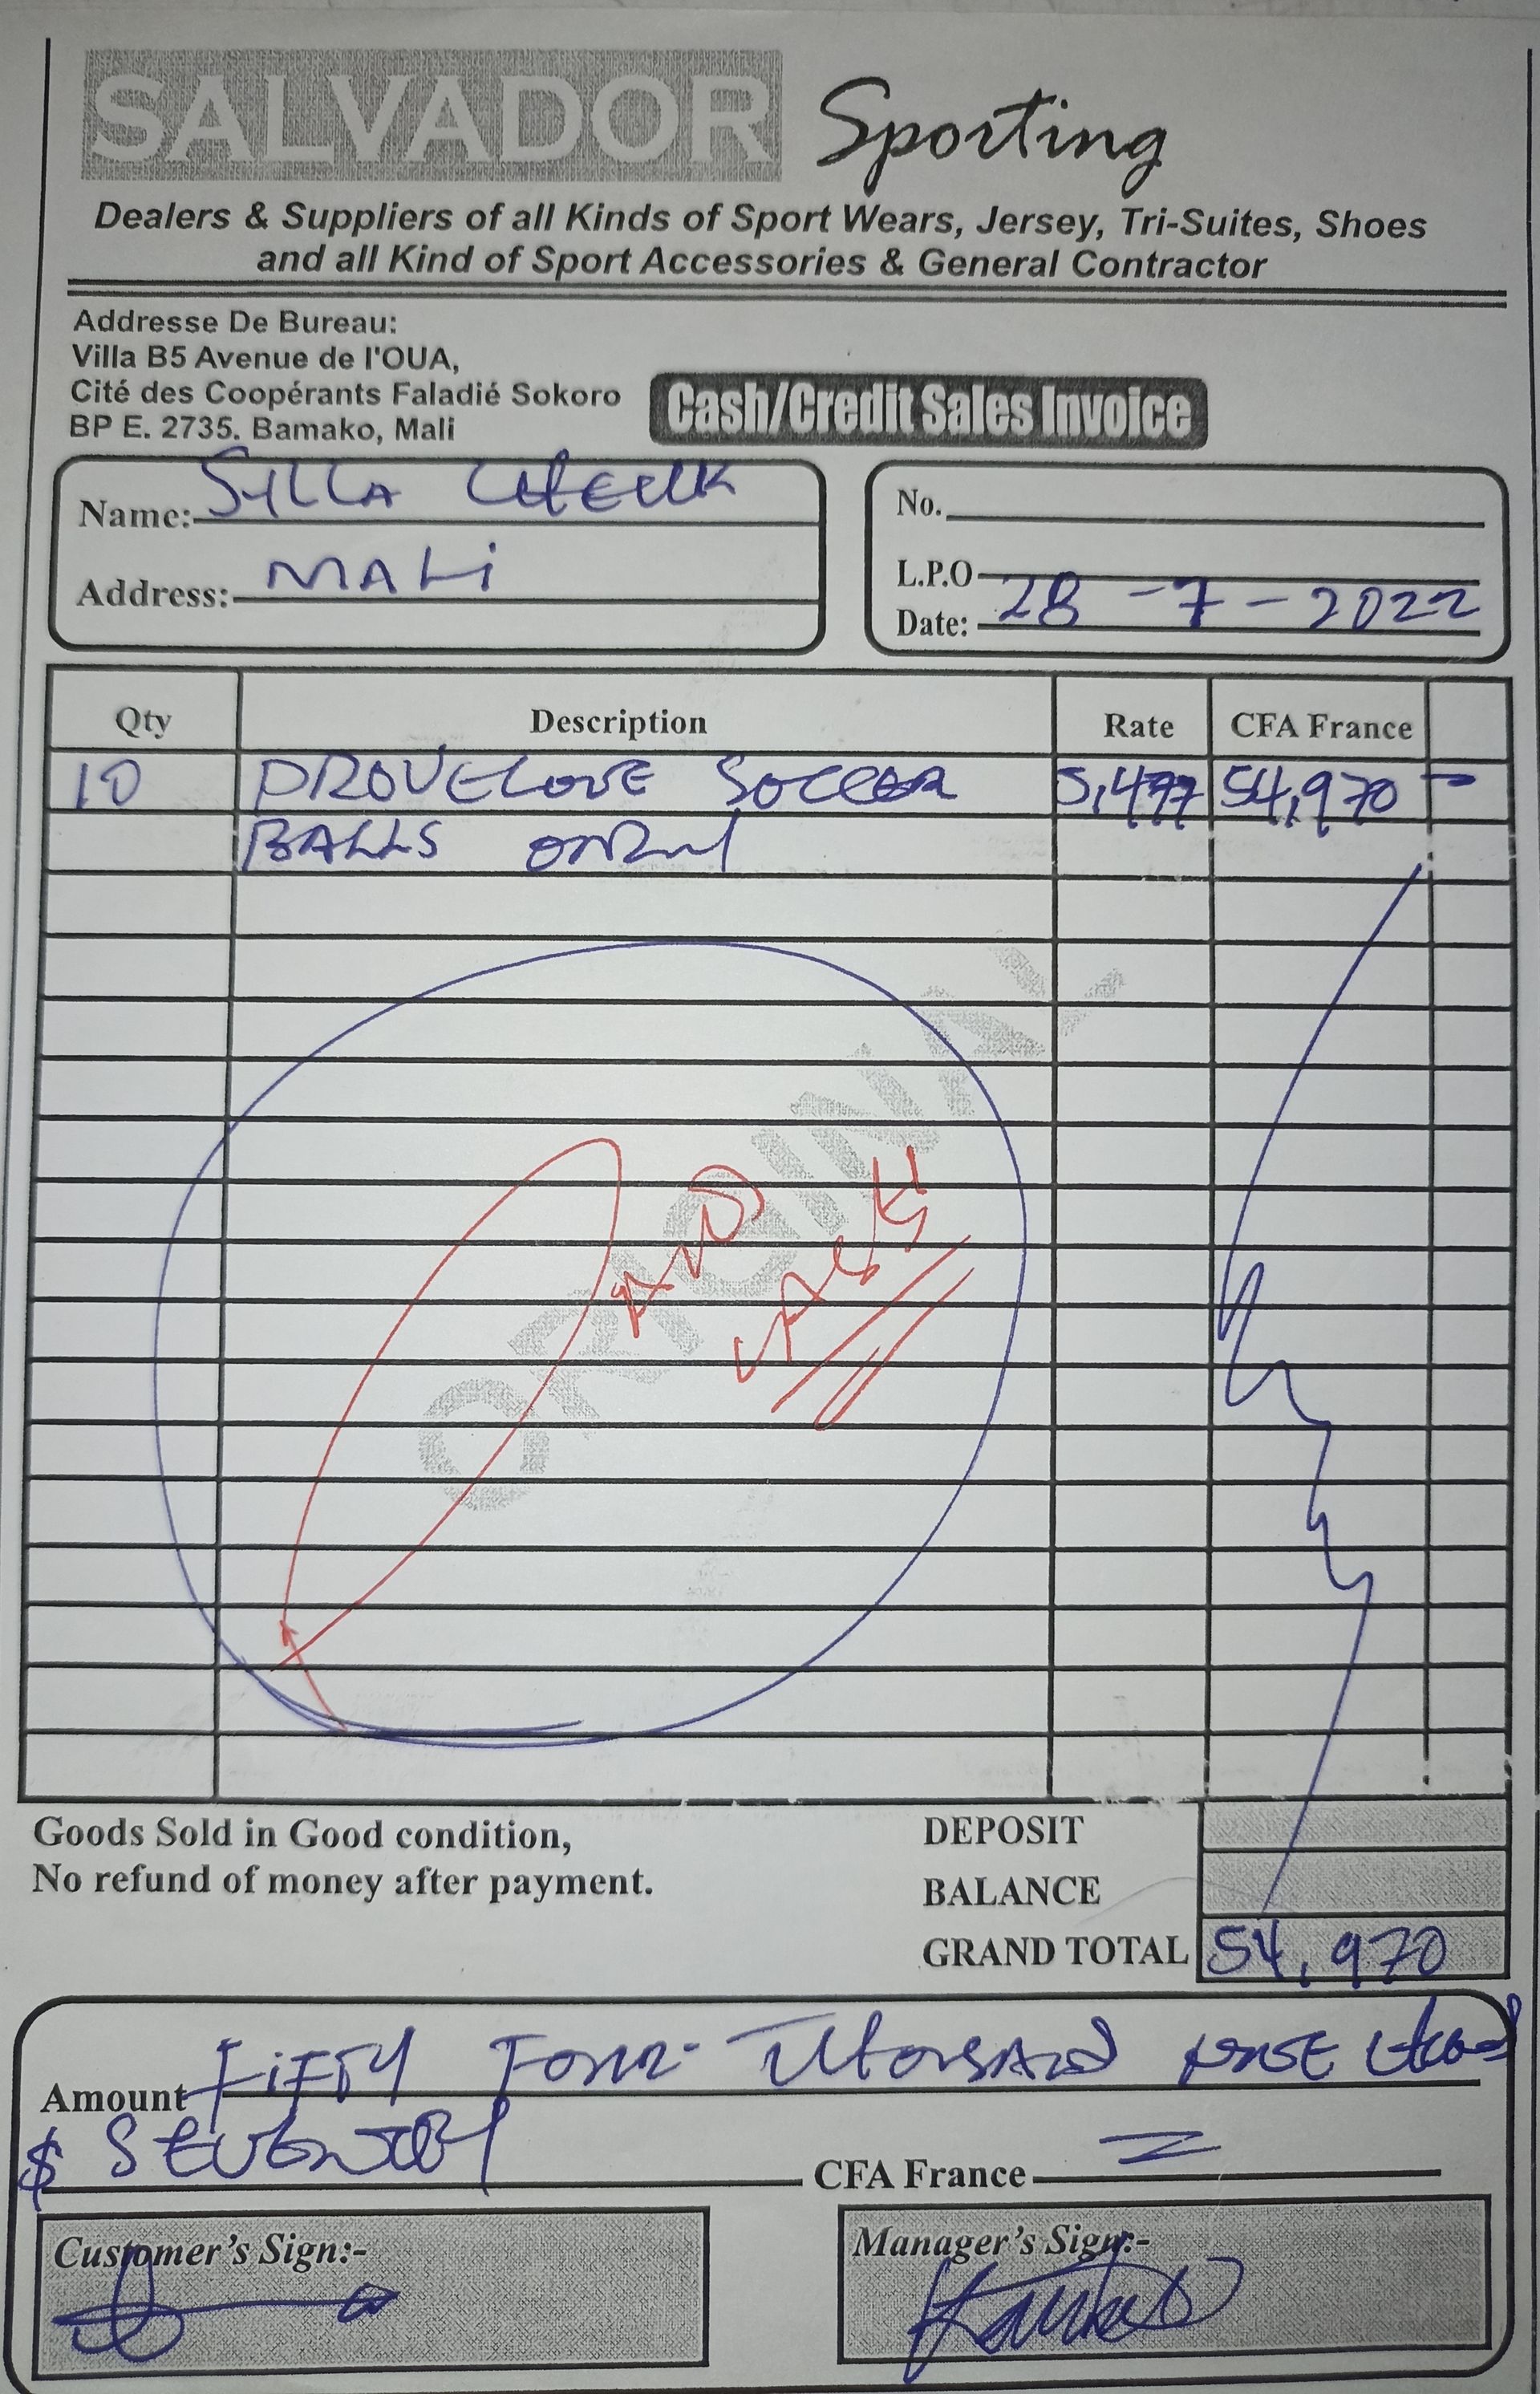 SALVADOR Sporting
Dealers & Suppliers of all Kinds of Sport Wears, Jersey, Tri-Suites, Shoes
and all Kind of Sport Accessories & General Contractor
Addresse De Bureau:
Villa B5 Avenue de l'OUA,
Cité des Coopérants Faladié Sokoro
BP E. 2735. Bamako, Mali
Cash/Credit Sales Invoice
Name: SYLLA
Address: MALi
No.
L.P.O
Date: 28-7-2022
Qty Description Rate CFA France
10 PROVELOVE SOCCER 5,497 54,970 -
BALLS ONLY
ORIGINAL
PAID
CASH
Goods Sold in Good condition,
No refund of money after payment.
DEPOSIT
BALANCE
GRAND TOTAL 54,970
Amount FiFTY FOUR THOUSAND NINE
$ SEVENTY CFA France
Customer's Sign:-
Manager's Sign:-